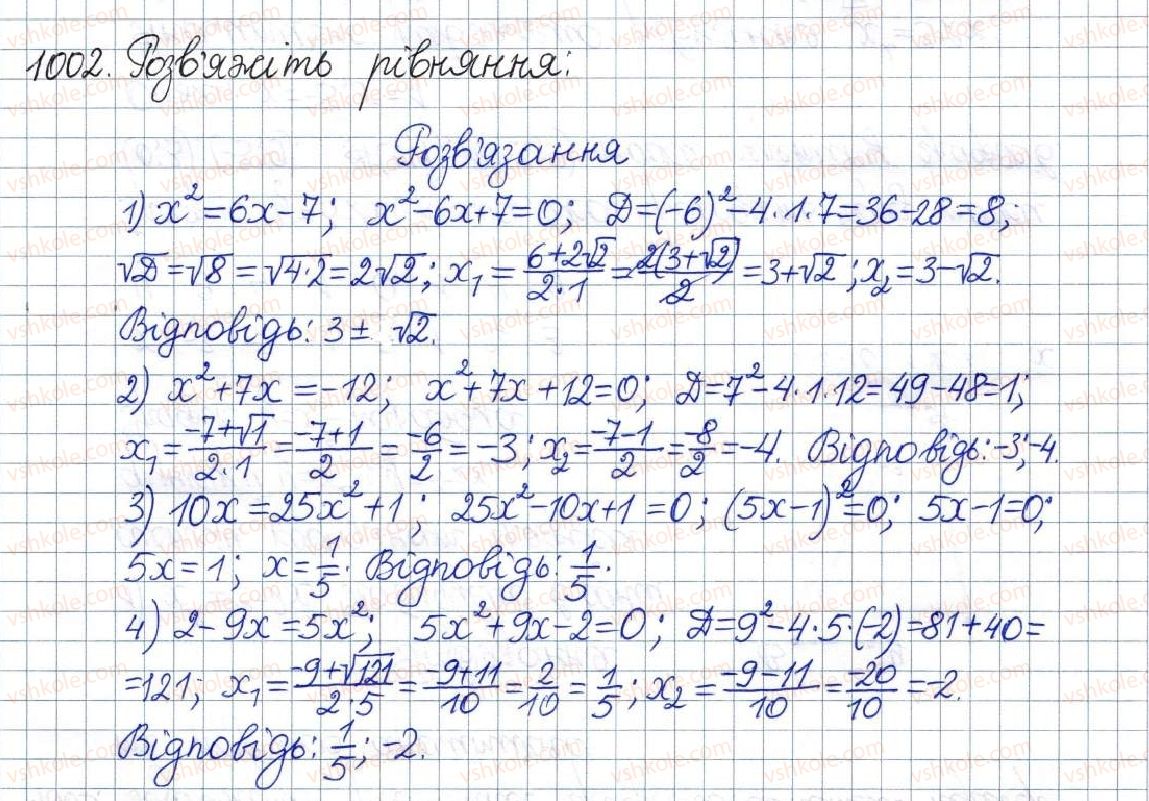 1002. Розв'яжіть рівняння:
Розв'язання
1) x²=6x-7; x²-6x+7=0; Д=(-6)²-4·1·7=36-28=8;
√Д=√8=√4·2=2√2; x₁=(6+2√2)/(2·1)=2(3+√2)/2=3+√2; x₂=3-√2.
Відповідь: 3± √2.
2) x²+7x=-12; x²+7x+12=0; Д=7²-4·1·12=49-48=1;
x₁=(-7+√1)/(2·1)=(-7+1)/2=-6/2=-3; x₂=(-7-1)/2=-8/2=-4. Відповідь: -3; -4.
3) 10x=25x²+1; 25x²-10x+1=0; (5x-1)²=0; 5x-1=0;
5x=1; x=1/5. Відповідь: 1/5.
4) 2-9x=5x²; 5x²+9x-2=0; Д=9²-4·5·(-2)=81+40=
=121; x₁=(-9+√121)/(2·5)=(-9+11)/10=2/10=1/5; x₂=(-9-11)/10=-20/10=-2.
Відповідь: 1/5; -2.